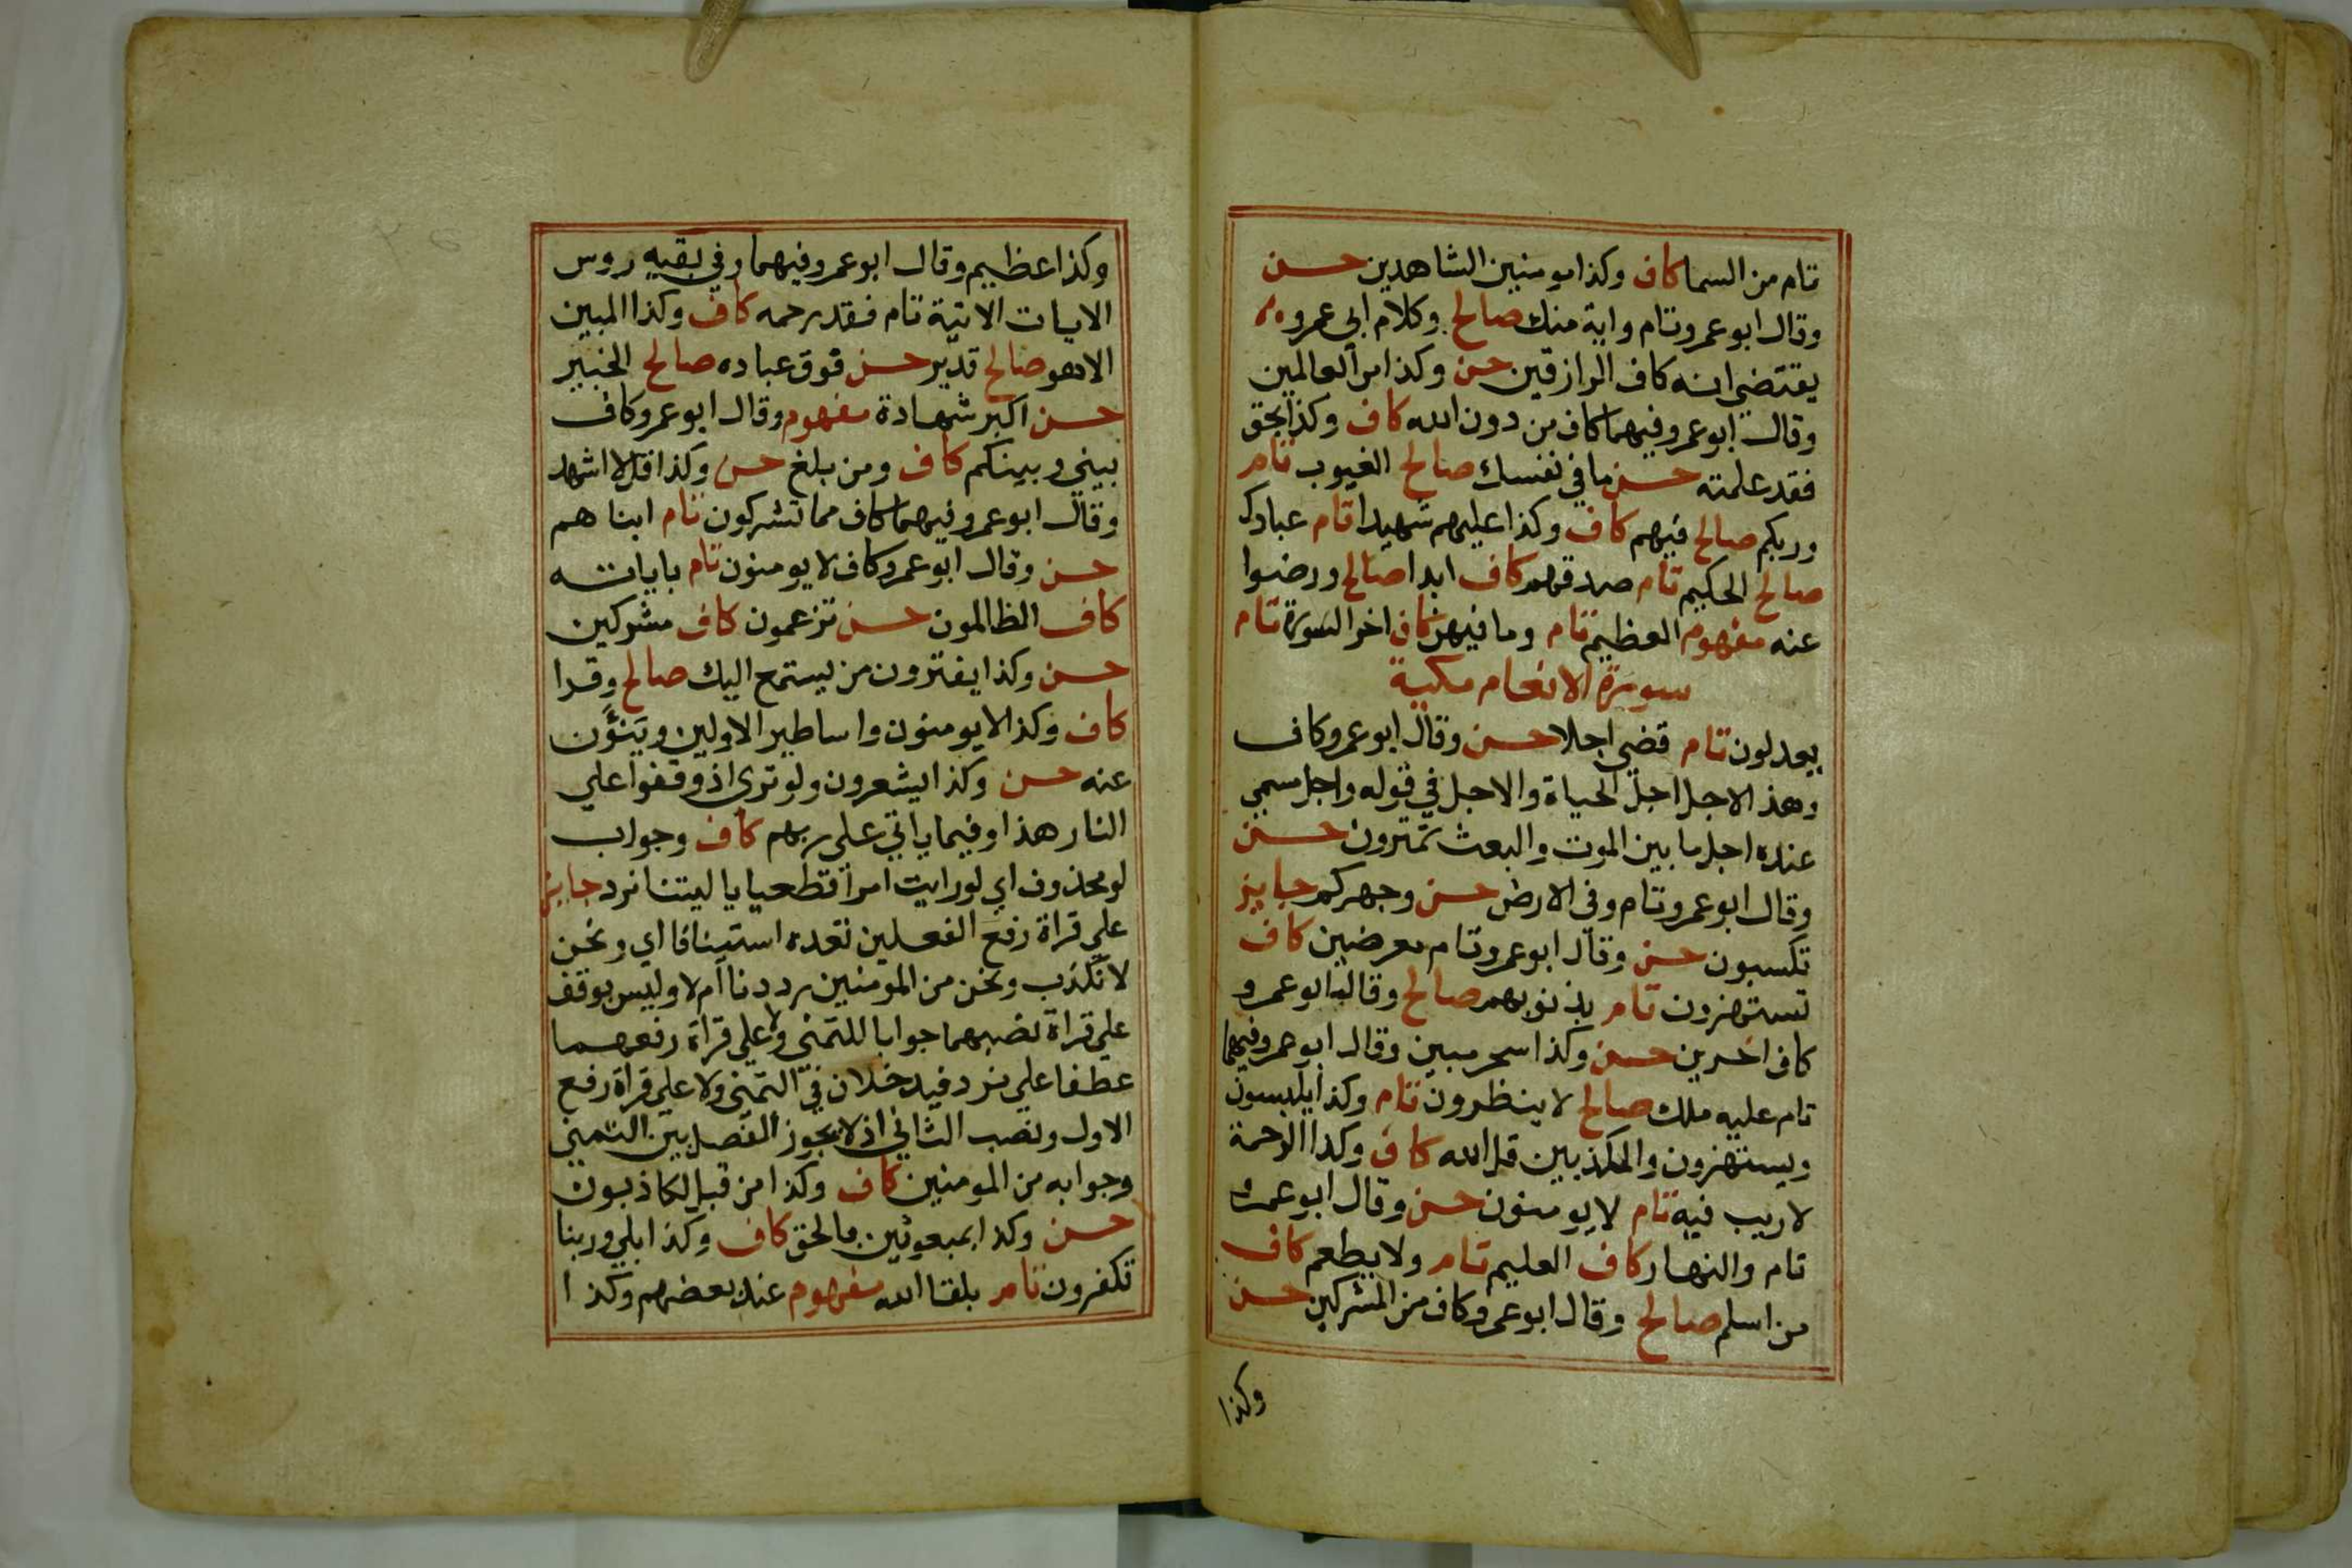 تام من السما كاف وكذا مومنين الشاهدين حسن
وقال ابو عمرو تام واية منك صالح وكلام ابي عمرو
يقتضي انه كاف الرازقين حسن وكذا من العالمين
وقال ابو عمرو فيهما كاف من دون الله كاف وكذا بحق
فقد علمته حسن ما في نفسك صالح الغيوب تام
وربكم صالح فيهم كاف وكذا عليهم شهيدا تام عبادك
صالح الحكيم تام صدقهم كاف ابدا صالح ورضوا
عنه مفهوم العظيم تام وما فيهن كاف اخر السورة تام
سورة الانعام مكية
يعدلون تام قضي اجلا حسن وقال ابو عمرو كاف
وهذ الاجل اجل الحياة والاجل في قوله واجل مسمي
عنده اجل ما بين الموت والبعث تمترون حسن
وقال ابو عمرو تام وفي الارض حسن وجهركم جايز
تكسبون حسن وقال ابو عمرو تام معرضين كاف
تستهزون تام بذنوبهم صالح وقال ابو عمرو
كاف اخرين حسن وكذا سحر مبين وقال ابو عمرو فيهما
تام عليه ملك صالح لا ينظرون تام وكذا يلبسون
ويستهزون والمكذبين قل الله كاف وكذا الرحمة
لا ريب فيه تام لا يومنون حسن وقال ابو عمرو
تام والنهار كاف العليم تام ولا يطعم كاف
من اسلم صالح وقال ابو عمرو كاف من المشركين حسن
وكذا
وكذا عظيم وقال ابو عمرو فيهما وفي بقيه روس
الايات الاتية تام فقد رحمه كاف وكذا المبين
الا هو صالح قدير حسن فوق عباده صالح الخبير
حسن اكبر شهادة مفهوم وقال ابو عمرو كاف
بيني وبينكم كاف ومن بلغ حسن وكذا قل لا اشهد
وقال ابو عمرو فيهما كاف مما تشركون تام ابناهم
حسن وقال ابو عمرو كاف لا يومنون تام باياته
كاف الظالمون حسن تزعمون كاف مشركين
حسن وكذا يفترون من يستمع اليك صالح وقرا
كاف وكذا لا يومنون واساطير الاولين وينؤن
عنه حسن وكذا يشعرون ولو تري اذ وقفوا علي
النار هذا وفيما ياتي علي ربهم كاف وجواب
لو محذوف اي لو رايت امرا فظيعا يا ليتنا نرد جايز
علي قراة رفع الفعلين بعده استينافا اي ونحن
لا نكذب ونحن من المومنين رددنا ام لا وليس بوقف
علي قراة نصبهما جوابا للتمني ولا علي قراة رفعهما
عطفا علي نرد فيدخلان في التمني ولا علي قراة رفع
الاول ونصب الثاني اذ لا يجوز الفصل بين التمني
وجوابه من المومنين كاف وكذا من قبل لكاذبون
حسن وكذا بمبعوثين بالحق كاف وكذا بلي وربنا
تكفرون تام بلقا الله مفهوم عند بعضهم وكذا